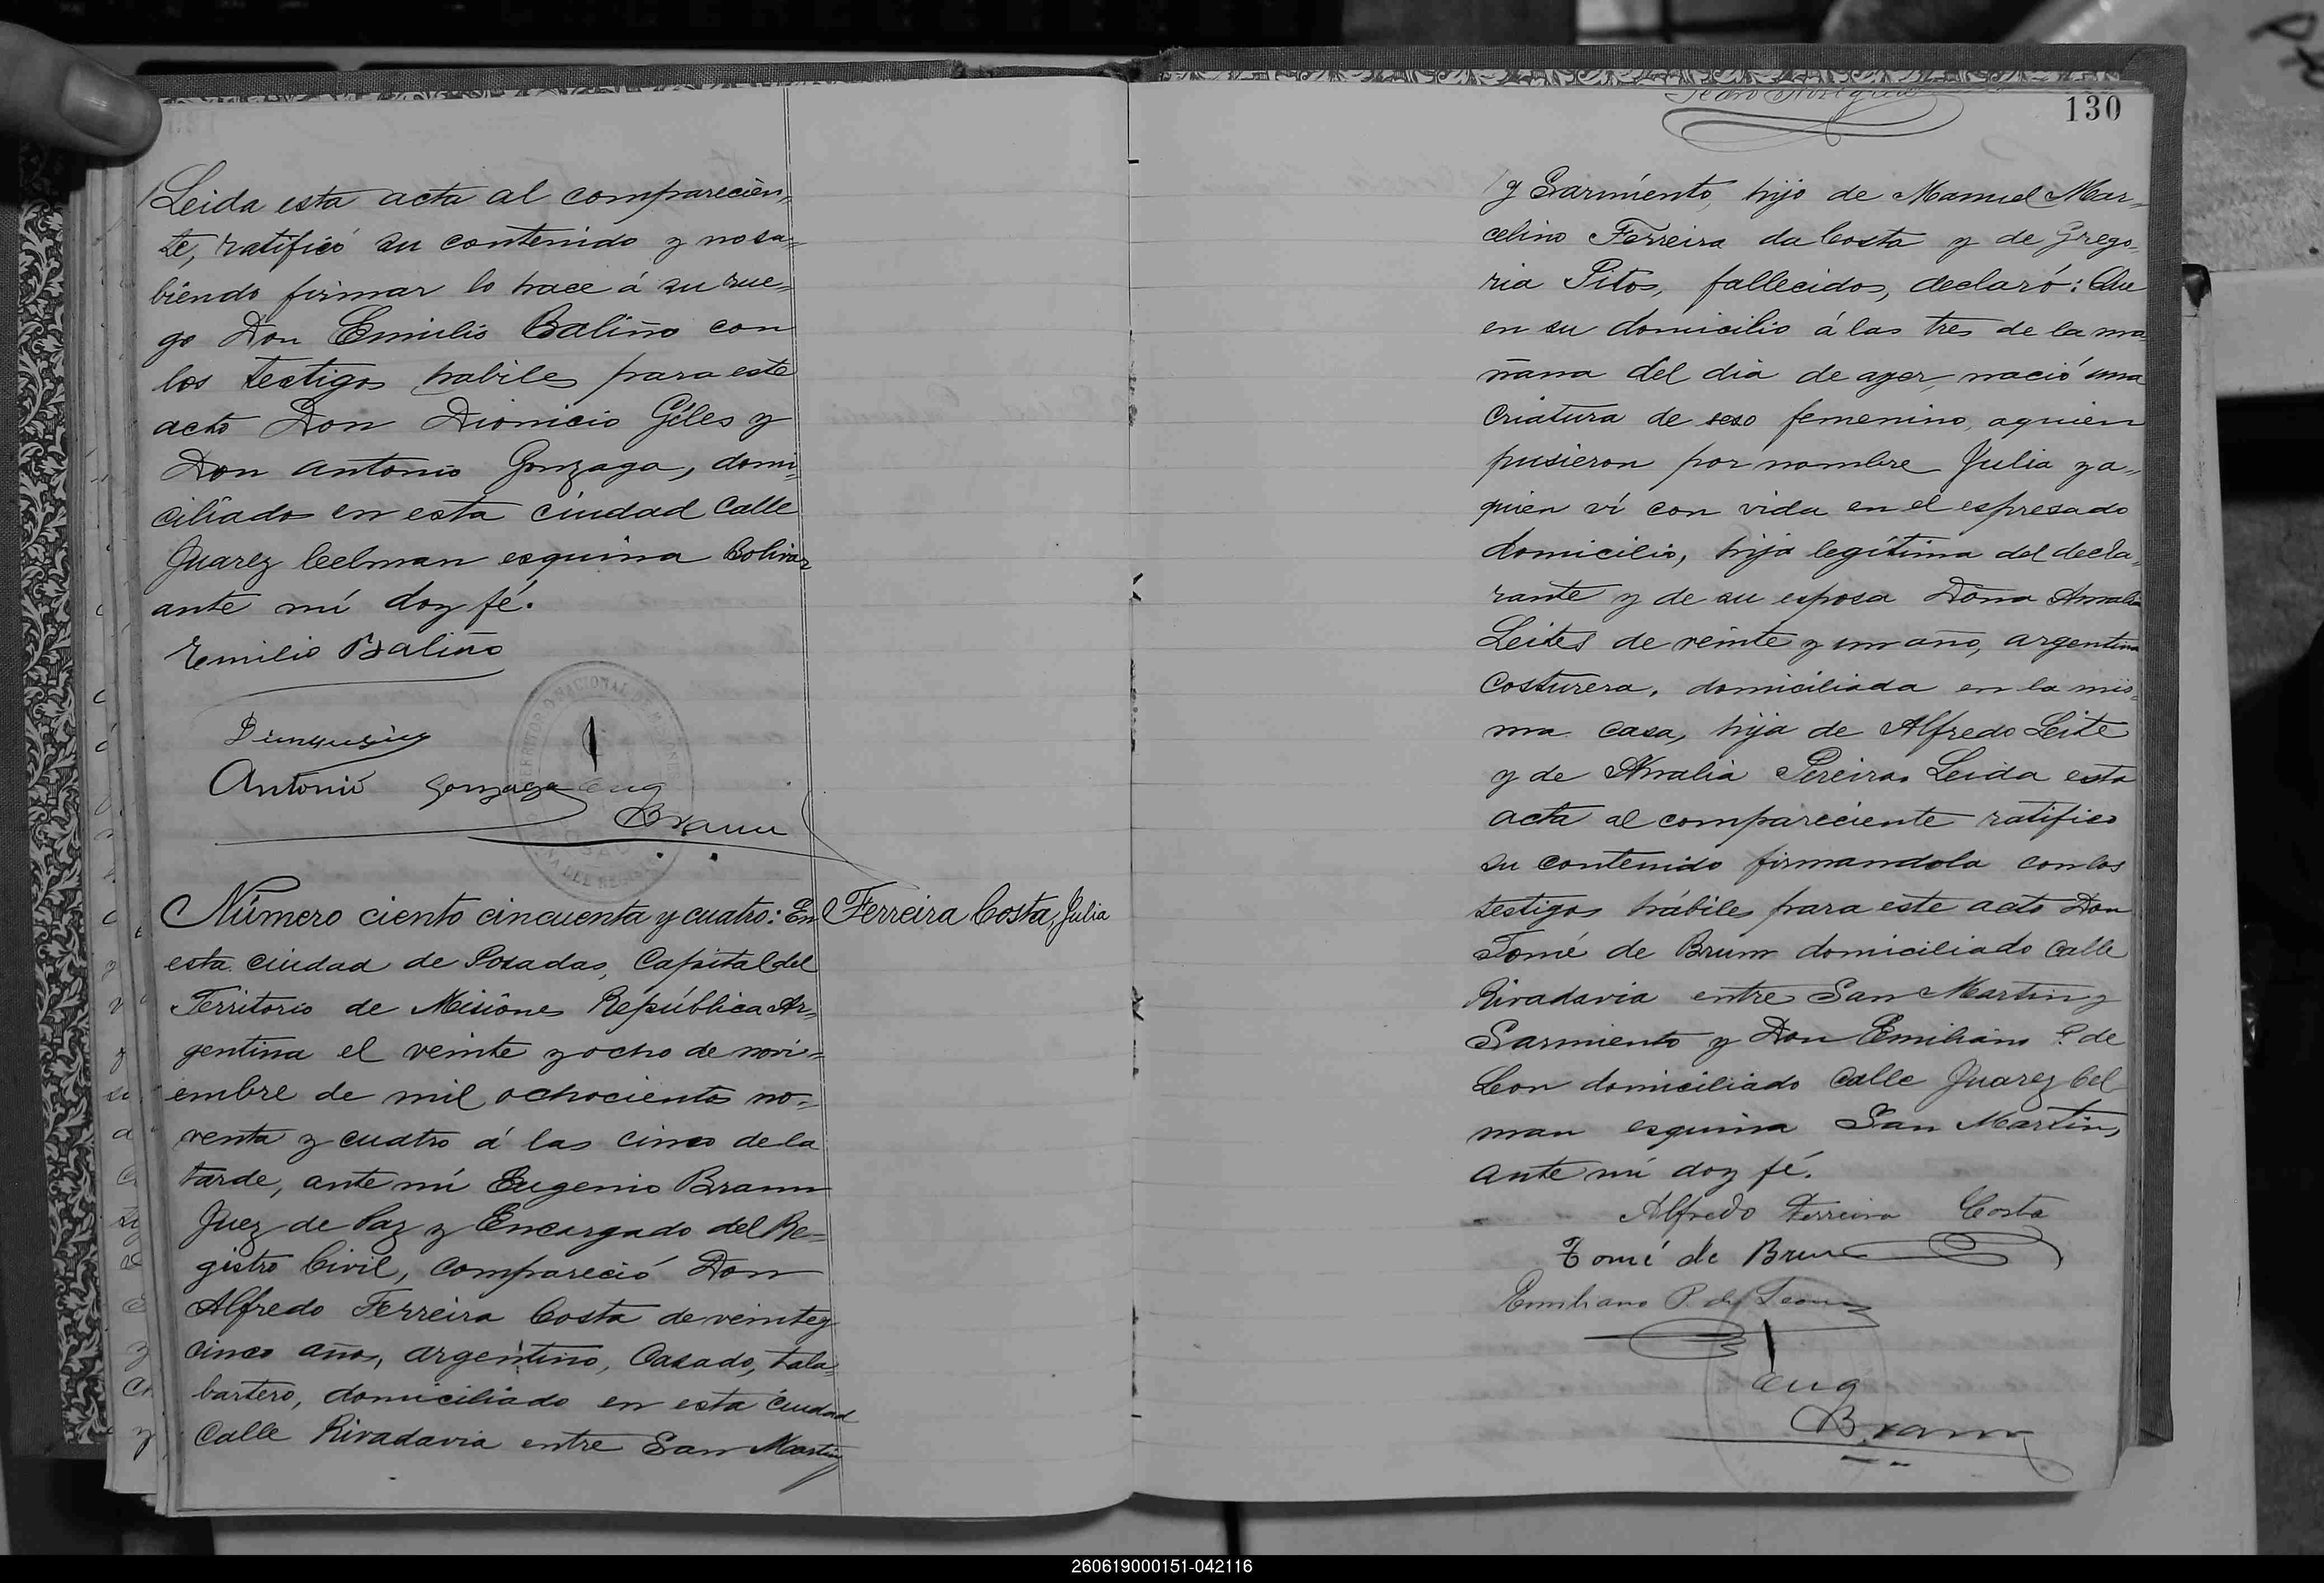 Leida esta acta al comparecien=
te, ratificó su contenido y no sa=
biendo firmar lo hace á su rue=
go Don Emilio Baliño con
los testigos habiles para este
acto Don Dionicio Giles y
Don Antonio Gonzaga, domi=
ciliados en esta ciudad Calle
Juarez Celman esquina Bolivar
ante mí doy fé.
Emilio Baliño
Antonio Gonzaga
Eug
Braun
Número ciento cincuenta y cuatro: En
Ferreira Costa, Julia
esta ciudad de Posadas, Capital del
Territorio de Misiones República Ar=
gentina el veinte y ocho de novi=
embre de mil ochocientos no=
venta y cuatro á las cinco de la
tarde, ante mí Eugenio Braun
Juez de Paz y Encargado del Re=
gistro Civil, compareció Don
Alfredo Ferreira Costa de veinte y
cinco años, argentino, Casado, tala=
bartero, domiciliado en esta ciudad
Calle Rivadavia entre San Martin
130
y Sarmiento, hijo de Manuel Mar=
celino Ferreira da Costa y de Grego=
ria Pitos, fallecidos, declaró: Que
en su domicilio á las tres de la ma
ñana del dia de ayer, nació una
criatura de sexo femenino, aquien
pusieron por nombre Julia y a=
quien ví con vida en el espresado
domicilio, hija legítima del decla=
rante y de su esposa Doña Amalia
Leites de veinte y un año, argentina
Costurera, domiciliada en la mis=
ma casa, hija de Alfredo Leite
y de Amalia Pereira. Leida esta
acta al compareciente ratifico
su contenido firmandola con los
testigos hábiles para este acto Don
Tomé de Brum domiciliado Calle
Rivadavia entre San Martin y
Sarmiento y Don Emiliano P. de
Leon domiciliado Calle Juarez Cel
man esquina San Martin,
ante mí doy fé.
Alfredo Ferreira Costa
Tomé de Brum
Emiliano P. de Leon
Eug
Braun
260619000151-042116